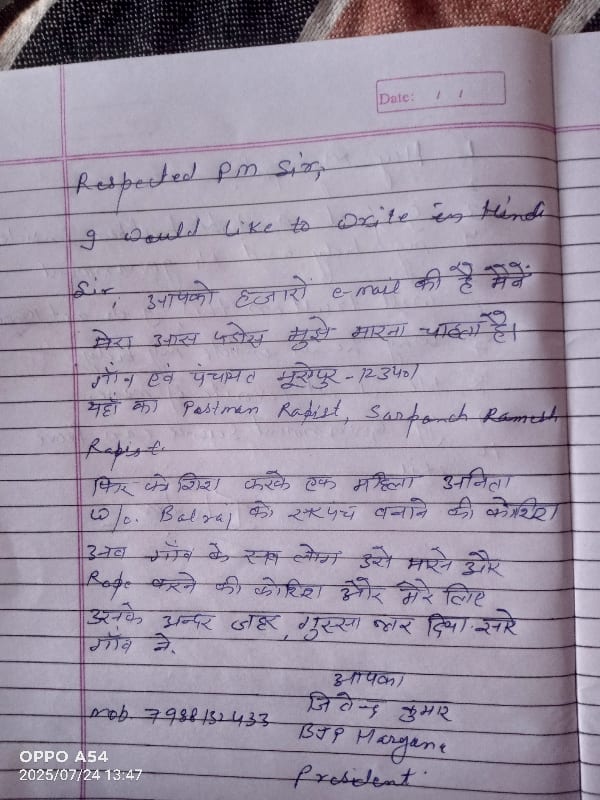 Date: / /
Respected PM Sir,
I would like to write in Hindi
Sir, आपको हजारों e-mail की है मैनें
मेरा आस पडोस मुझे मारना चाहता है।
गाँव एवं पंचायत मूसेपुर - 123401
यहाँ का Postman Rapist, Sarpanch Ramesh
Rapist.
फिर कोशिश करके एक महिला अनिता
w/o. Balraj को सरपंच बनाने की कोशिश
अब गाँव के सब लोग उसे मारने और
Rape करने की कोशिश और मेरे लिए
उसके अन्दर जहर, गुस्सा भर दिया सारे
गाँव ने.
आपका
जितेन्द्र कुमार
mob. 7988132433
BJP Haryana
President
OPPO A54
2025/07/24 13:47